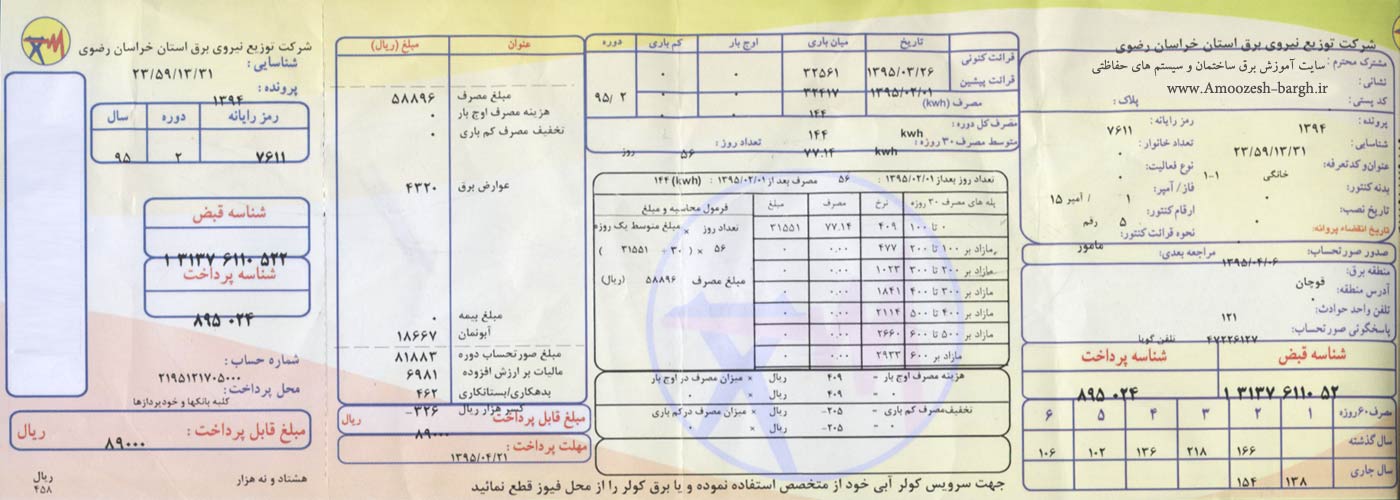 شرکت توزیع نیروی برق استان خراسان رضوی
مشترک محترم :
سایت آموزش برق ساختمان و سیستم های حفاظتی
نشانی :
www.Amoozesh-bargh.ir
کد پستی :
پلاک :
پرونده : ۱۳۹۴
رمز رایانه : ۷۶۱۱
شناسایی : ۲۳/۵۹/۱۳/۳۱
تعداد خانوار : ۰
عنوان و کد تعرفه : خانگی ۱-۱
نوع فعالیت : ۰
بدنه کنتور : ۰
فاز/ آمپر : ۱ / آمپر ۱۵
تاریخ نصب :
ارقام کنتور : ۵ رقم
تاریخ انقضاء پروانه : ۰
نحوه قرائت کنتور : مامور
صدور صورتحساب :
مراجعه بعدی : ۱۳۹۵/۰۴/۰۶
منطقه برق : قوچان
آدرس منطقه :
تلفن واحد حوادث : ۱۲۱
پاسخگوئی صورتحساب :
تلفن گویا ۴۷۲۲۶۱۲۷
شناسه قبض شناسه پرداخت
۱ ۳۱۳۷ ۶۱۱۰ ۵۲ ۸۹۵ ۰۲۴
مصرف ۶۰ روزه ۱ ۲ ۳ ۴ ۵ ۶
سال گذشته ۱۶۶ ۲۱۸ ۱۳۶ ۱۰۲ ۱۰۶
سال جاری ۱۳۸ ۱۵۴
تاریخ میان باری اوج بار کم باری دوره
قرائت کنونی ۱۳۹۵/۰۳/۲۶ ۳۲۵۶۱ ۰ ۰
قرائت پیشین ۱۳۹۵/۰۲/۰۱ ۳۲۴۱۷ ۰ ۰ ۹۵/ ۲
مصرف (kwh) ۱۴۴ ۰ ۰
مصرف کل دوره : kwh ۱۴۴
متوسط مصرف ۳۰ روزه : kwh ۷۷.۱۴ تعداد روز : ۵۶ روز
تعداد روز بعد از ۱۳۹۵/۰۲/۰۱ : ۵۶ مصرف بعد از ۱۳۹۵/۰۲/۰۱ : ۱۴۴ (kWh)
پله های مصرف ۳۰ روزه نرخ مصرف مبلغ فرمول محاسبه و مبلغ
۰ تا ۱۰۰ ۴۰۹ ۷۷.۱۴ ۳۱۵۵۱ تعداد روز × مبلغ متوسط یک روزه
مازاد بر ۱۰۰ تا ۲۰۰ ۴۷۷ ۰.۰۰ ۰ ۵۶ × ( ۳۰ ÷ ۳۱۵۵۱ )
مازاد بر ۲۰۰ تا ۳۰۰ ۱۰۲۳ ۰.۰۰ ۰ مبلغ مصرف ۵۸۸۹۶ (ریال)
مازاد بر ۳۰۰ تا ۴۰۰ ۱۸۴۱ ۰.۰۰ ۰
مازاد بر ۴۰۰ تا ۵۰۰ ۲۱۱۴ ۰.۰۰ ۰
مازاد بر ۵۰۰ تا ۶۰۰ ۲۶۶۰ ۰.۰۰ ۰
مازاد بر ۶۰۰ ۲۹۳۳ ۰.۰۰ ۰
هزینه مصرف اوج بار = ۴۰۹ ریال × میزان مصرف در اوج بار
۰ = ۴۰۹ ریال × ۰
تخفیف مصرف کم باری = ۲۰۵- ریال × میزان مصرف در کم باری
۰ = ۲۰۵- ریال × ۰
جهت سرویس کولر آبی خود از متخصص استفاده نموده و یا برق کولر را از محل فیوز قطع نمائید
عنوان مبلغ (ریال)
مبلغ مصرف ۵۸۸۹۶
هزینه مصرف اوج بار ۰
تخفیف مصرف کم باری ۰
عوارض برق ۴۳۲۰
مبلغ بیمه ۰
آبونمان ۱۸۶۶۷
مبلغ صورتحساب دوره ۸۱۸۸۳
مالیات بر ارزش افزوده ۶۹۸۱
بدهکاری/بستانکاری ۴۶۲
کسر هزار ریال ۳۲۶-
مبلغ قابل پرداخت : ۸۹۰۰۰ ریال
مهلت پرداخت : ۱۳۹۵/۰۴/۲۱
شرکت توزیع نیروی برق استان خراسان رضوی
شناسایی : ۲۳/۵۹/۱۳/۳۱
پرونده : ۱۳۹۴
رمز رایانه دوره سال
۷۶۱۱ ۲ ۹۵
شناسه قبض
۱ ۳۱۳۷ ۶۱۱۰ ۵۲۲
شناسه پرداخت
۸۹۵ ۰۲۴
شماره حساب : ۲۱۹۵۱۲۱۷۰۵۰۰۰
محل پرداخت : کلیه بانکها و خودپردازها
مبلغ قابل پرداخت : ۸۹۰۰۰ ریال
هشتاد و نه هزار ریال
۴۵۸